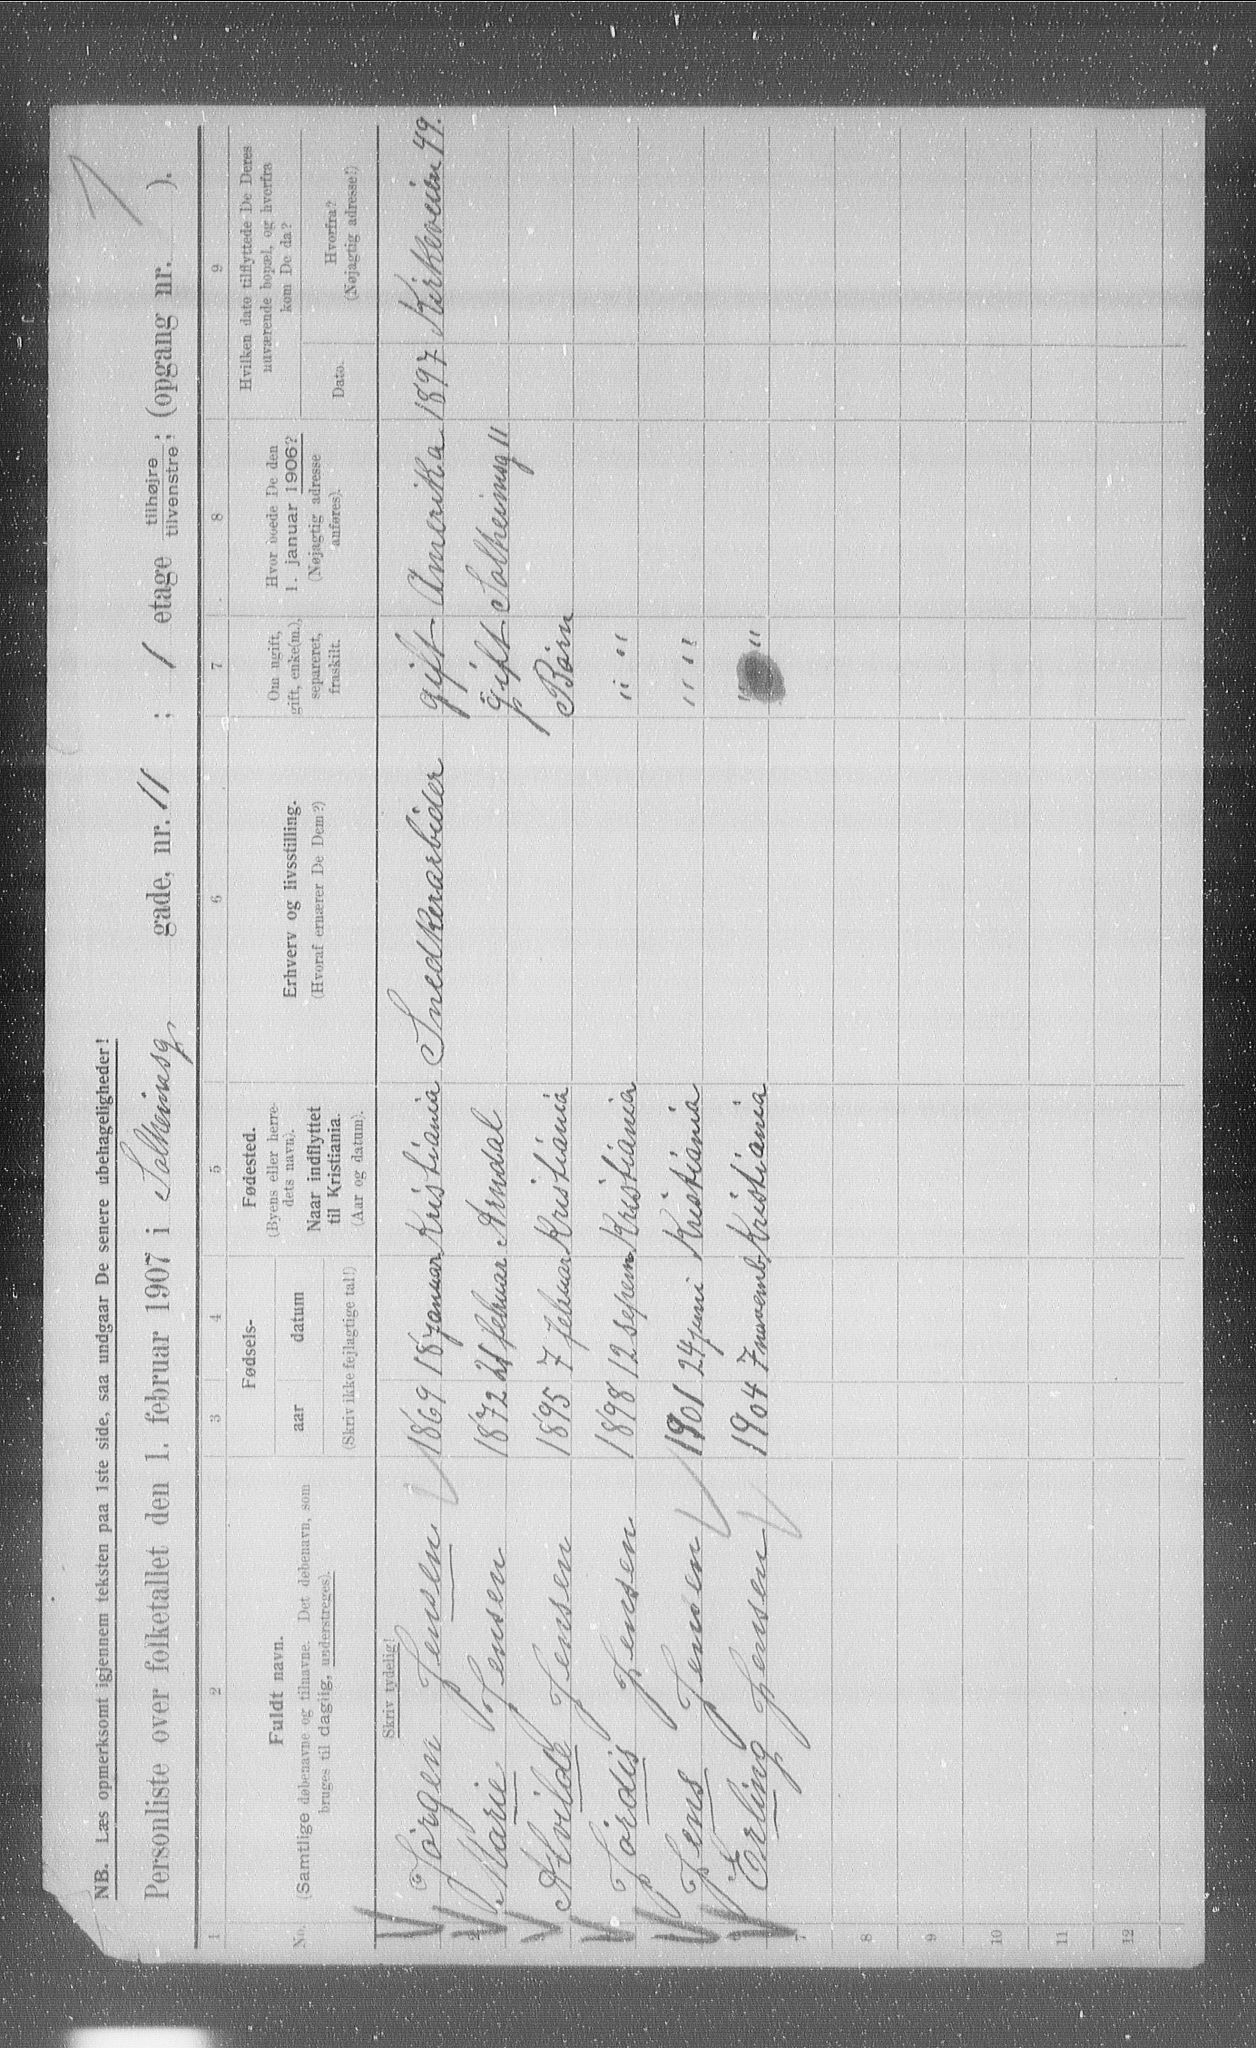 NB. Læs opmerksomt igjennem teksten paa 1ste side, saa undgaar De senere ubehageligheder!
Personliste over folketallet den 1. februar 1907 i Solheimsg gade, nr. 11 ; 1 etage tilhøjre / tilvenstre ; (opgang nr. ).
1 2 3 4 5 6 7 8 9
No.
Fuldt navn.
(Samtlige døbenavne og tilnavne. Det døbenavn, som
bruges til daglig, understreges).
Fødsels-
aar datum
(Skriv ikke fejlagtige tal!)
Fødested.
(Byens eller herre-
dets navn).
Naar indflyttet
til Kristiania.
(Aar og datum).
Erhverv og livsstilling.
(Hvoraf ernærer De Dem?)
Om ugift,
gift, enke(m.),
separeret,
fraskilt.
Hvor boede De den
1. januar 1906?
(Nøjagtig adresse
anføres).
Hvilken dato tilflyttede De Deres
nuværende bopæl, og hvorfra
kom De da?
Dato.
Hvorfra?
(Nøjagtig adresse!)
Skriv tydelig!
Jørgen Jensen 1869 18 januar Kristiania Snedkerarbider gift Amerika 1897 Kirkeveien 49.
2 Marie Jensen 1872 21 februar Arndal gift Solheimsg 11
3 Alvilde Jensen 1895 7 februar Kristiania Børn
Jordis Jensen 1898 12 sepem Kristiania " "
Jens Jensen 1901 24 juni Kristiania " "
6 Erling Jensen 1904 7 novemb Kristiania " "
7
8
9
10
11
12